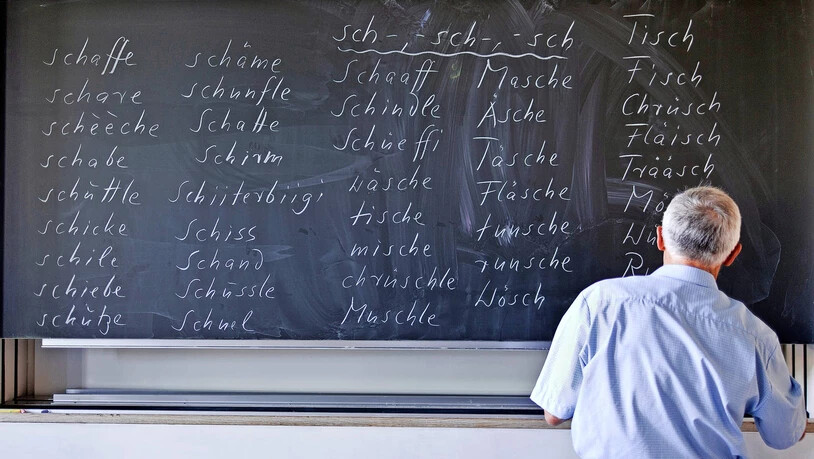 sch-, -sch-, -sch
schaffe
schare
schèèche
schabe
schùttle
schicke
schile
schiebe
schùtze
schäme
schunfle
Schatte
Schirm
Schijterbiigi
Schiss
Schand
Schùssle
Schnel
Schaaff
Schindle
Schùeffi
wäsche
tische
mische
chrùschle
Muschle
Masche
Äsche
Täsche
Fläsche
tunsche
runsche
Wösch
Tisch
Fisch
Chrùsch
Fläisch
Träasch